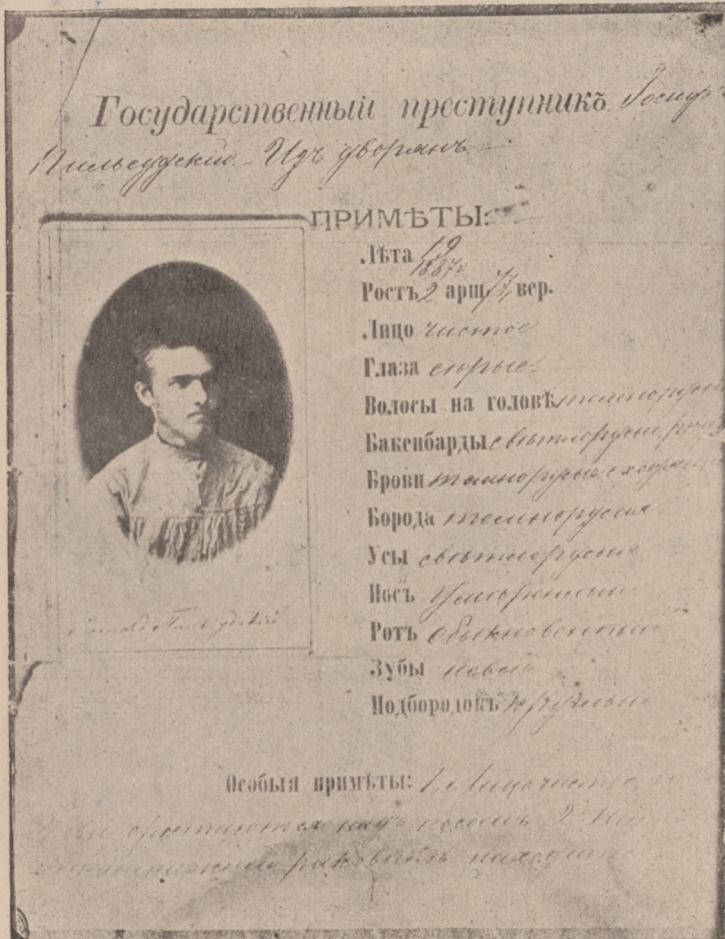 Государственный преступникъ Іосифъ
Пильсудскій - Изъ дворянъ
ПРИМѢТЫ:
Лѣта 19
1887г
Ростъ 2 арш. 7½ вер.
Лицо чистое
Глаза сѣрые
Волосы на головѣ темнорусые
Бакенбарды свѣтлорусые
Брови темнорусые
Борода темнорусая
Усы свѣтлорусые
Носъ умѣренный
Ротъ обыкновенный
Зубы
Подбородокъ круглый
Особыя примѣты: 1, Лицо чистое
сростаются надъ носомъ 2
раковинѣ находится